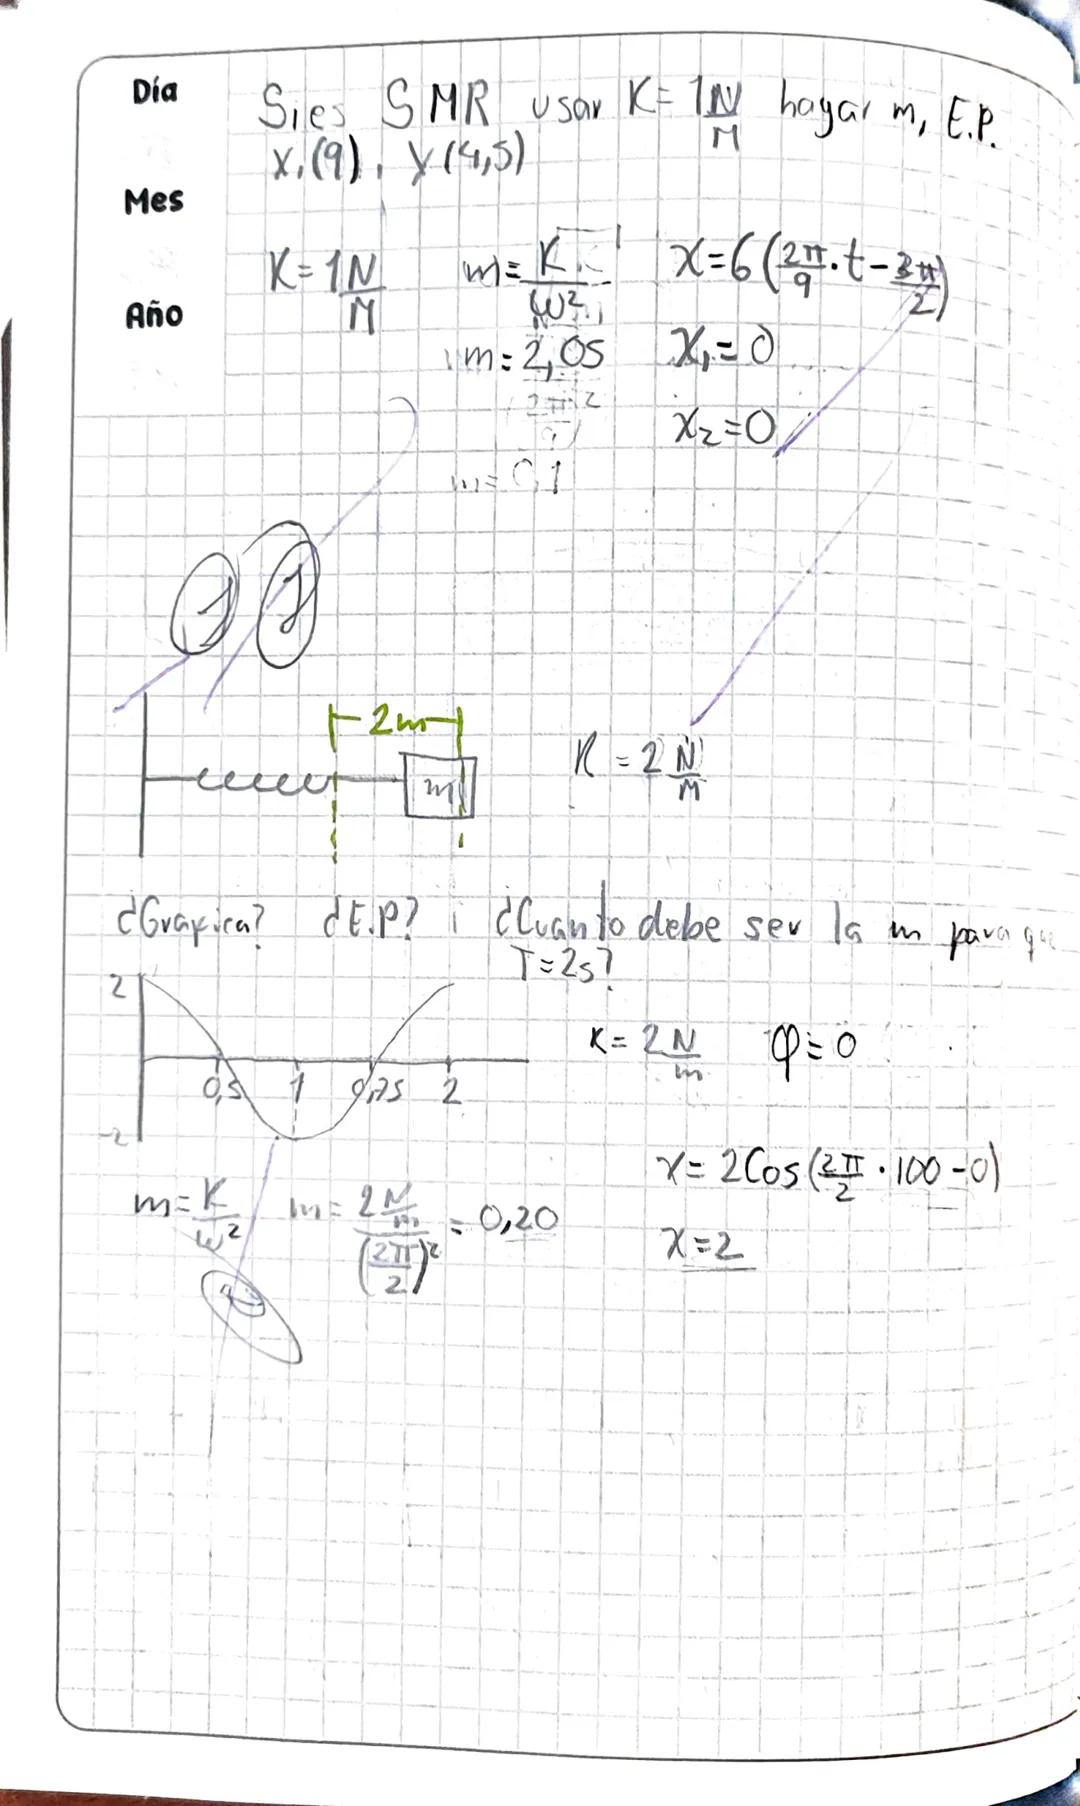 Día
Mes
Año
Si es SMR usar K= 1 N/M hayar m, E.P.
x,(9), y(4,5)
K= 1 N/M
m= K/ω²
m= 2,05
(2π/9)²
m= 0,1
x=6(2π/9·t-3π/2)
x₁=0
x₂=0
2m
m
K = 2 N/M
¿Grafica? ¿E.P? ¿Cuanto debe ser la m para que
T=2s?
2
0,5 1 0,75 2
-2
K= 2 N/m φ=0
x= 2Cos(2π/2 · 100 - 0)
x=2
m= K/ω² m= 2 N/m / (2π/2)² = 0,20